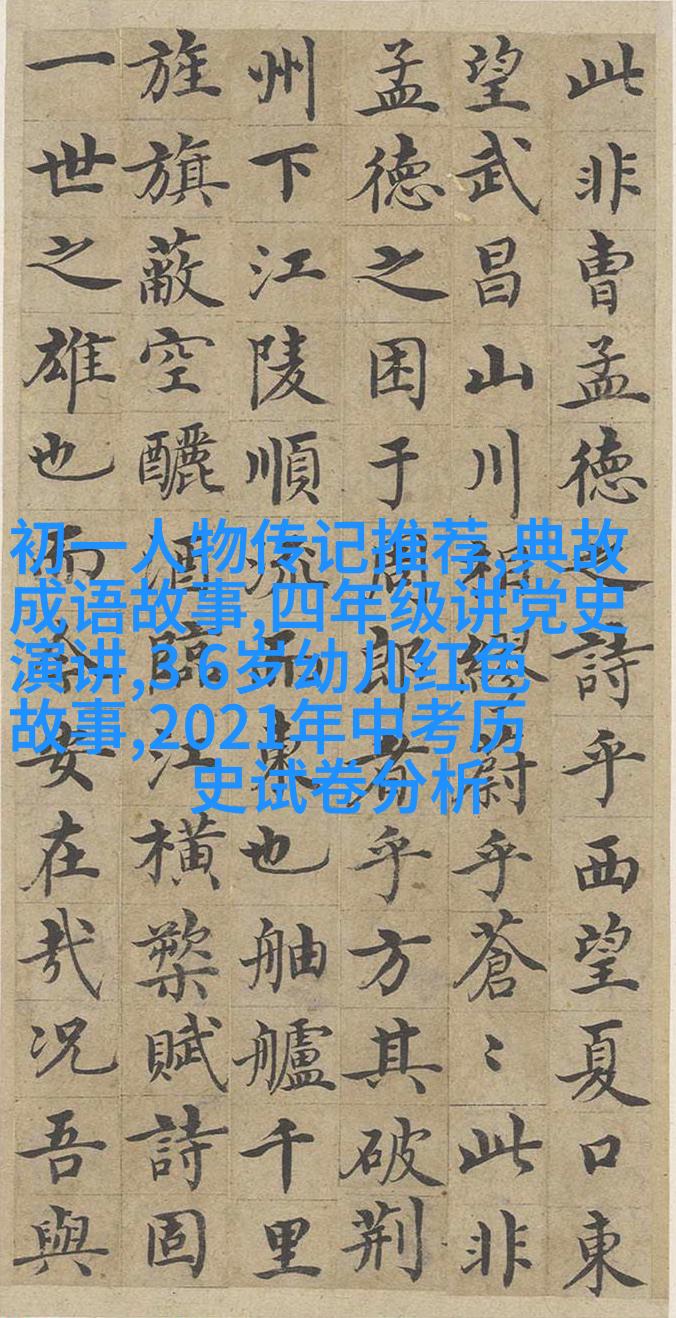 此非曹孟德之詩乎西望夏口東
望武昌山川相繆蔚乎蒼〻此非
孟德之困于周郎者乎方其破荆
州下江陵順流而東也舳艫千里
旌旗蔽空釃酒臨江橫槊賦詩固
一世之雄也而今安在哉况吾與
初一人物传记推荐,典故
成语故事,四年级讲党史
演讲,3 6岁幼儿红色
故事,2021年中考历
史试卷分析